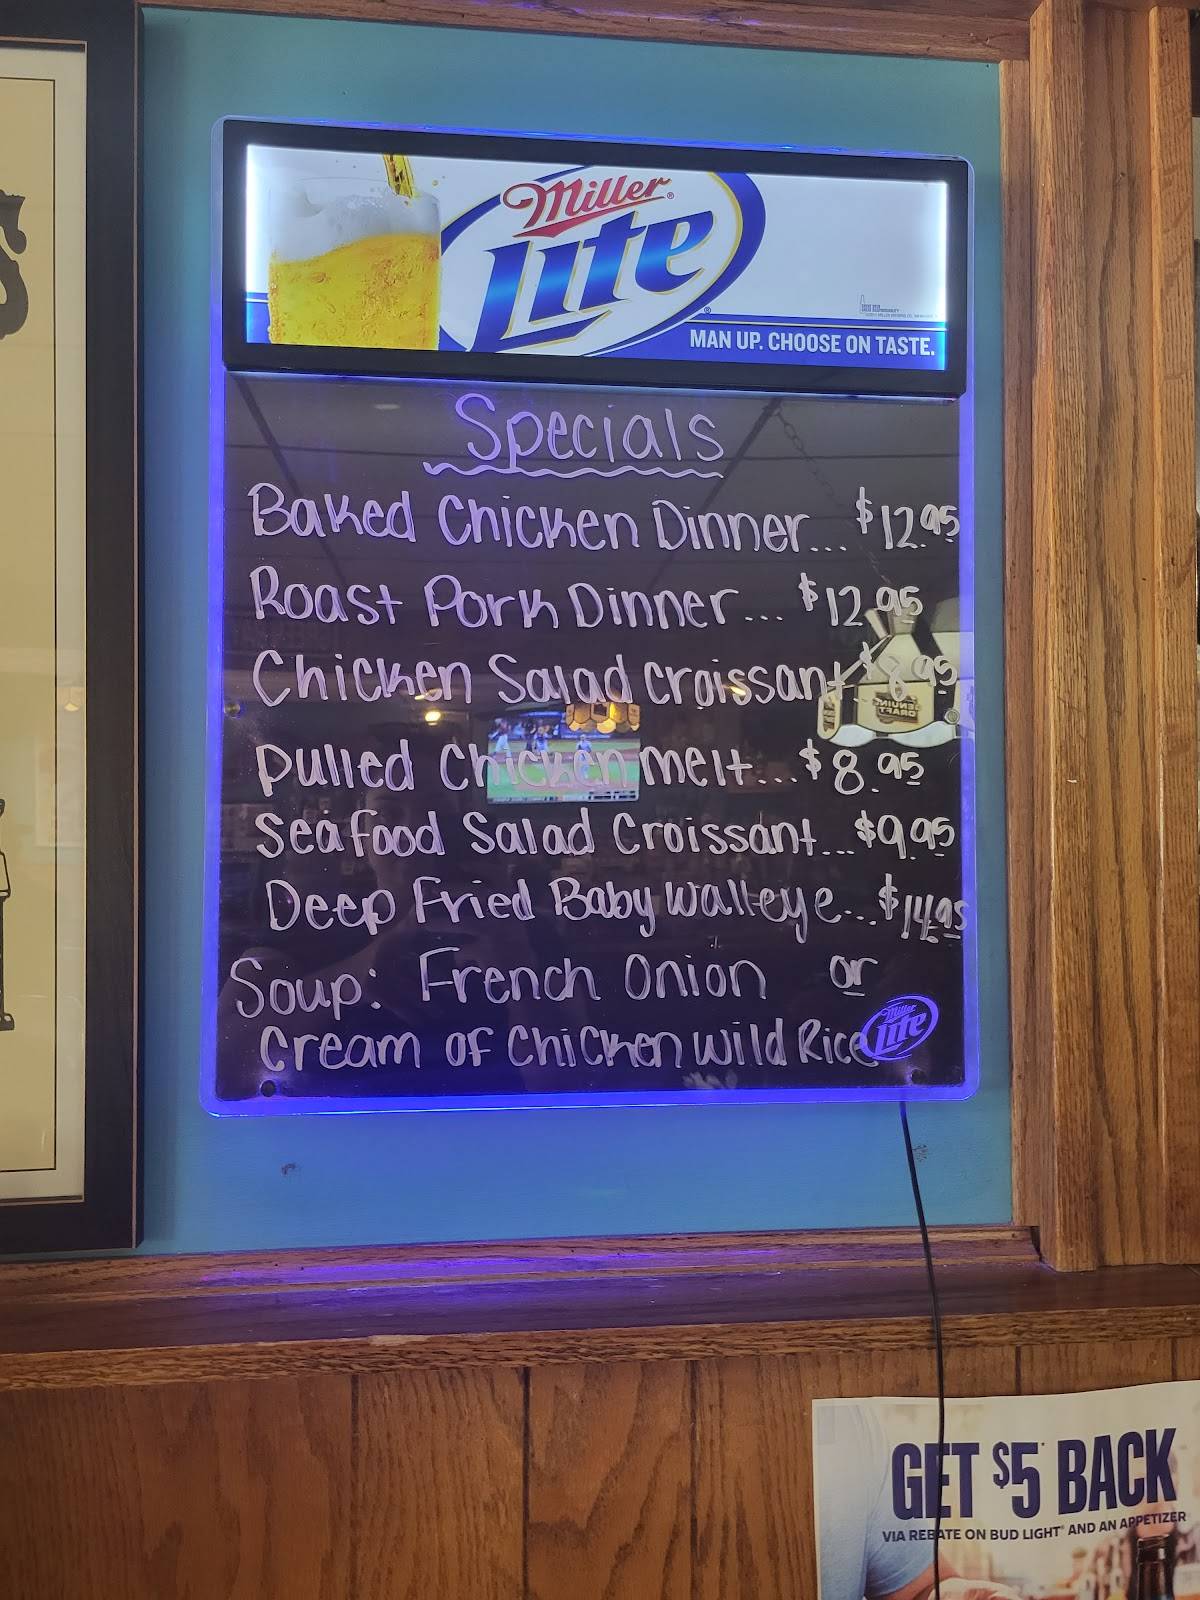 Miller
Lite
MAN UP. CHOOSE ON TASTE.
Specials
Baked Chicken Dinner... $12.95
Roast Pork Dinner... $12.95
Chicken Salad Croissant... $8.95
Pulled Chicken melt... $8.95
Seafood Salad Croissant... $9.95
Deep Fried Baby Walleye... $14.95
Soup: French Onion or
Cream of Chicken Wild Rice
Miller
Lite
GET $5* BACK
VIA REBATE ON BUD LIGHT® AND AN APPETIZER